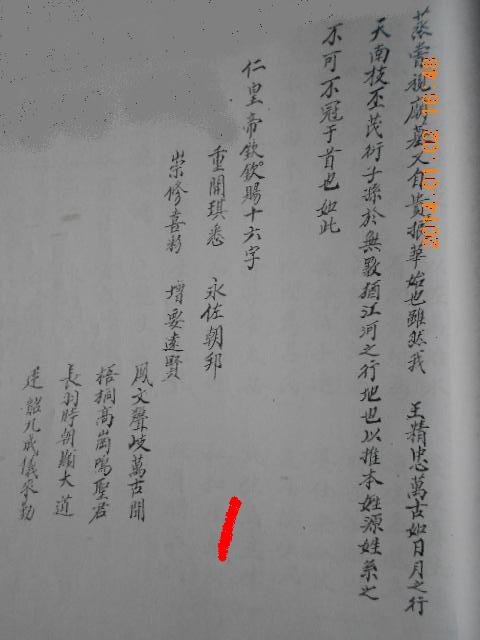 蒸嘗視廟墓又自貴振華始也雖然我　王精忠萬古如日月之行
天南枝丕茂衍子孫於無數猶江河之行地也以推本姓源姓系之
不可不冠于首也如此
仁皇帝欽欽賜十六字
重開琪悉　永佐朝邦
崇修喜彰　增要遠賢
鳳文聲岐萬古開
梧桐高崗鳴聖君
長羽時朝大道
韶九成儀來勤
2014.01.02 16:48